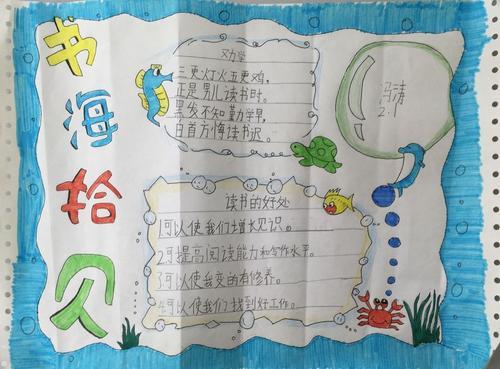 书海拾贝
劝学
三更灯火五更鸡,
正是男儿读书时。
黑发不知勤学早,
白首方悔读书迟。
马涛
2.1
读书的好处
1.可以使我们增长见识。
2.可提高阅读能力和写作水平。
3.可以使我变的有修养。
4.可以使我们找到好工作。